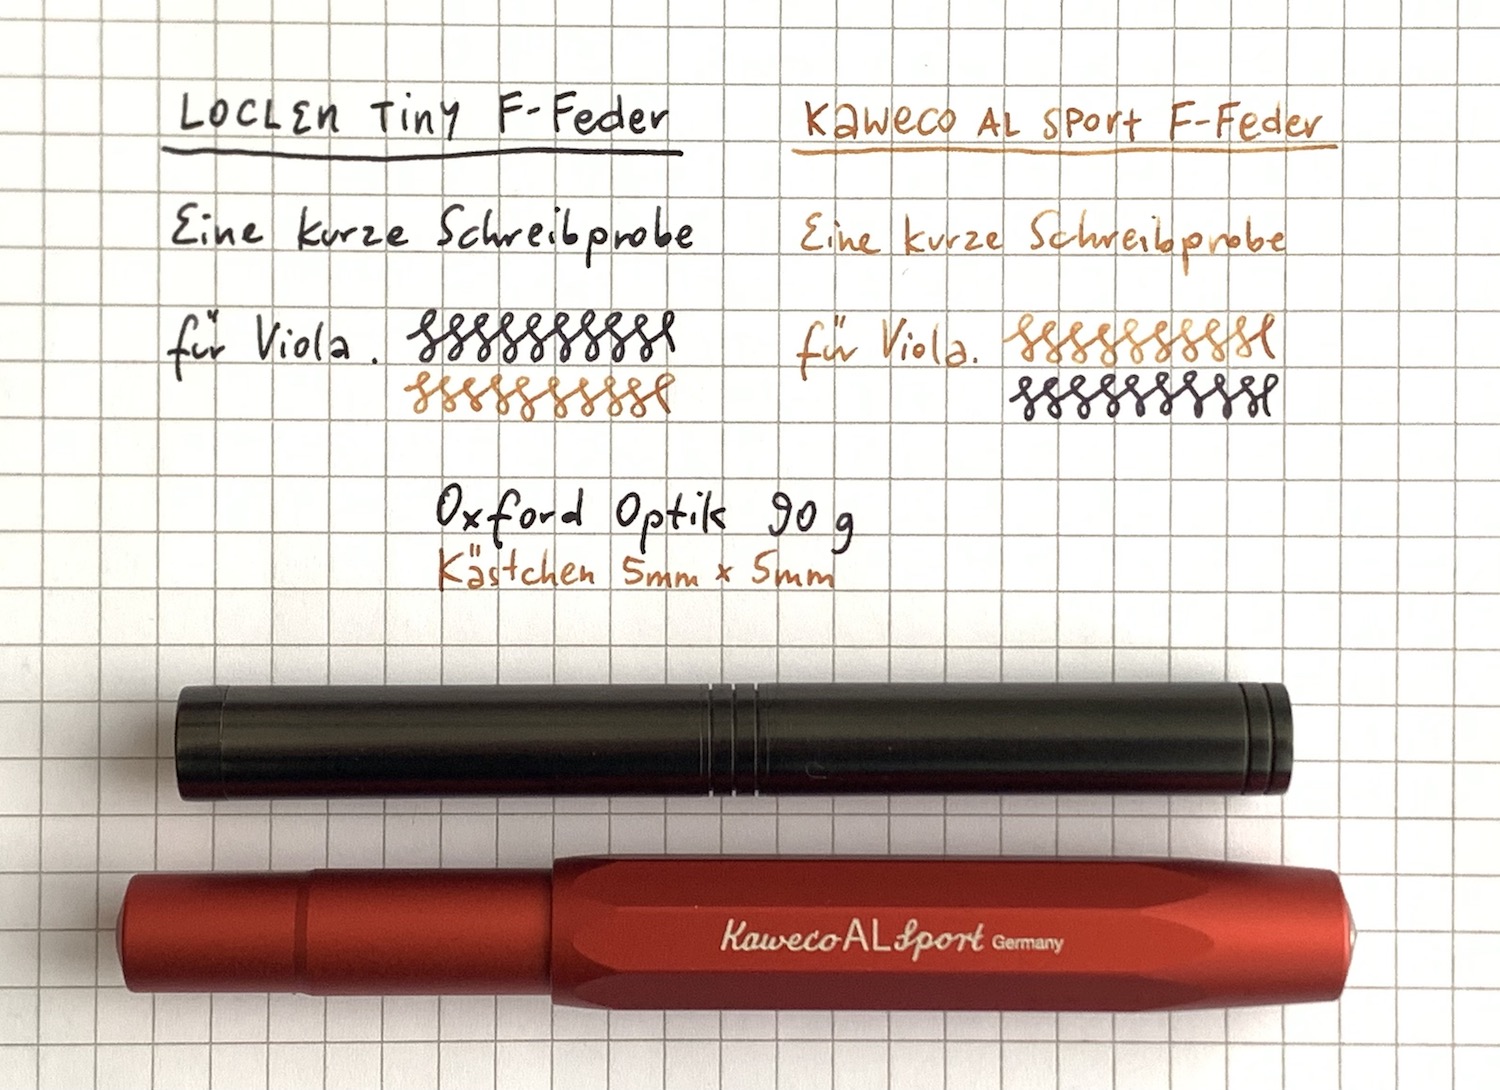 LOCLEN Tiny F-Feder
Eine kurze Schreibprobe
für Viola.
Kaweco AL SPort F-Feder
Eine kurze Schreibprobe
für Viola.
Oxford Optik 90 g
Kästchen 5mm x 5mm
Kaweco AL Sport Germany